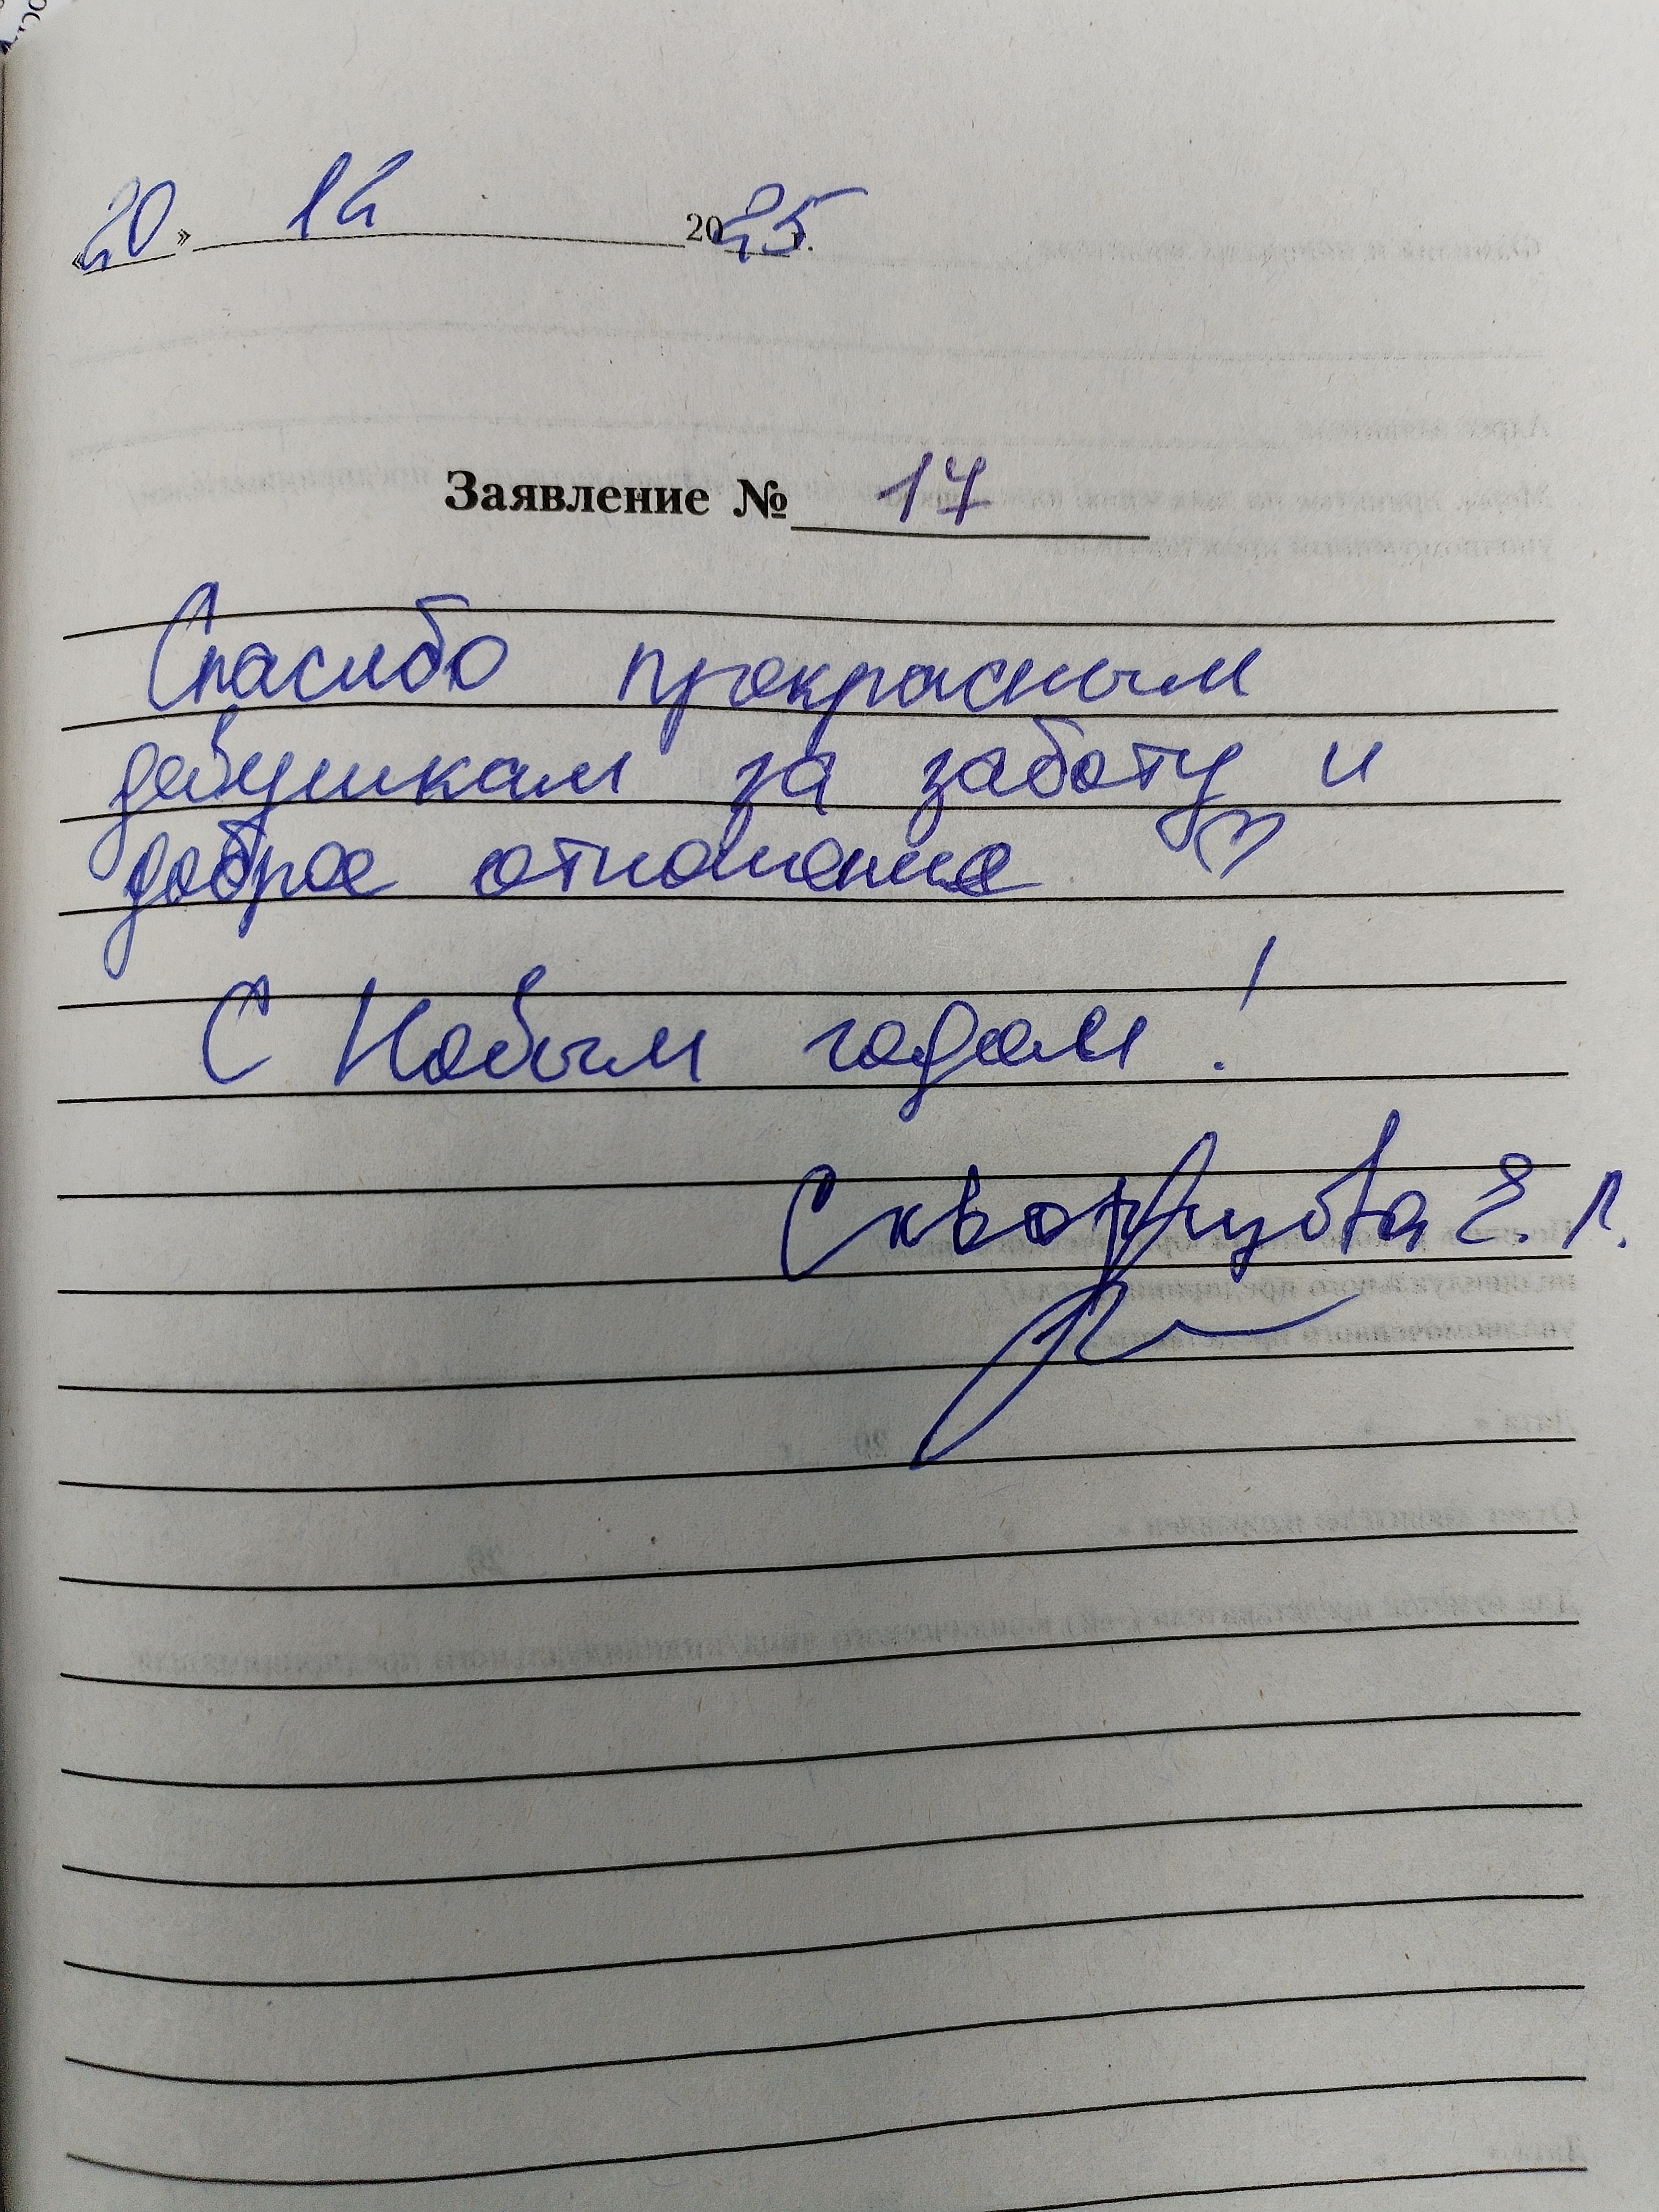 «20» 12 2025 г.
Заявление № 17
Спасибо прекрасным
девушкам за заботу и
доброе отношение ♡
С Новым годом!
Скворцова Е. Г.